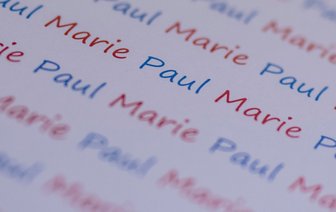 Paul
Paul Marie
Marie Paul Marie
Paul Marie Paul Marie
Marie Paul Marie Paul
Marie Paul Marie
Paul Marie